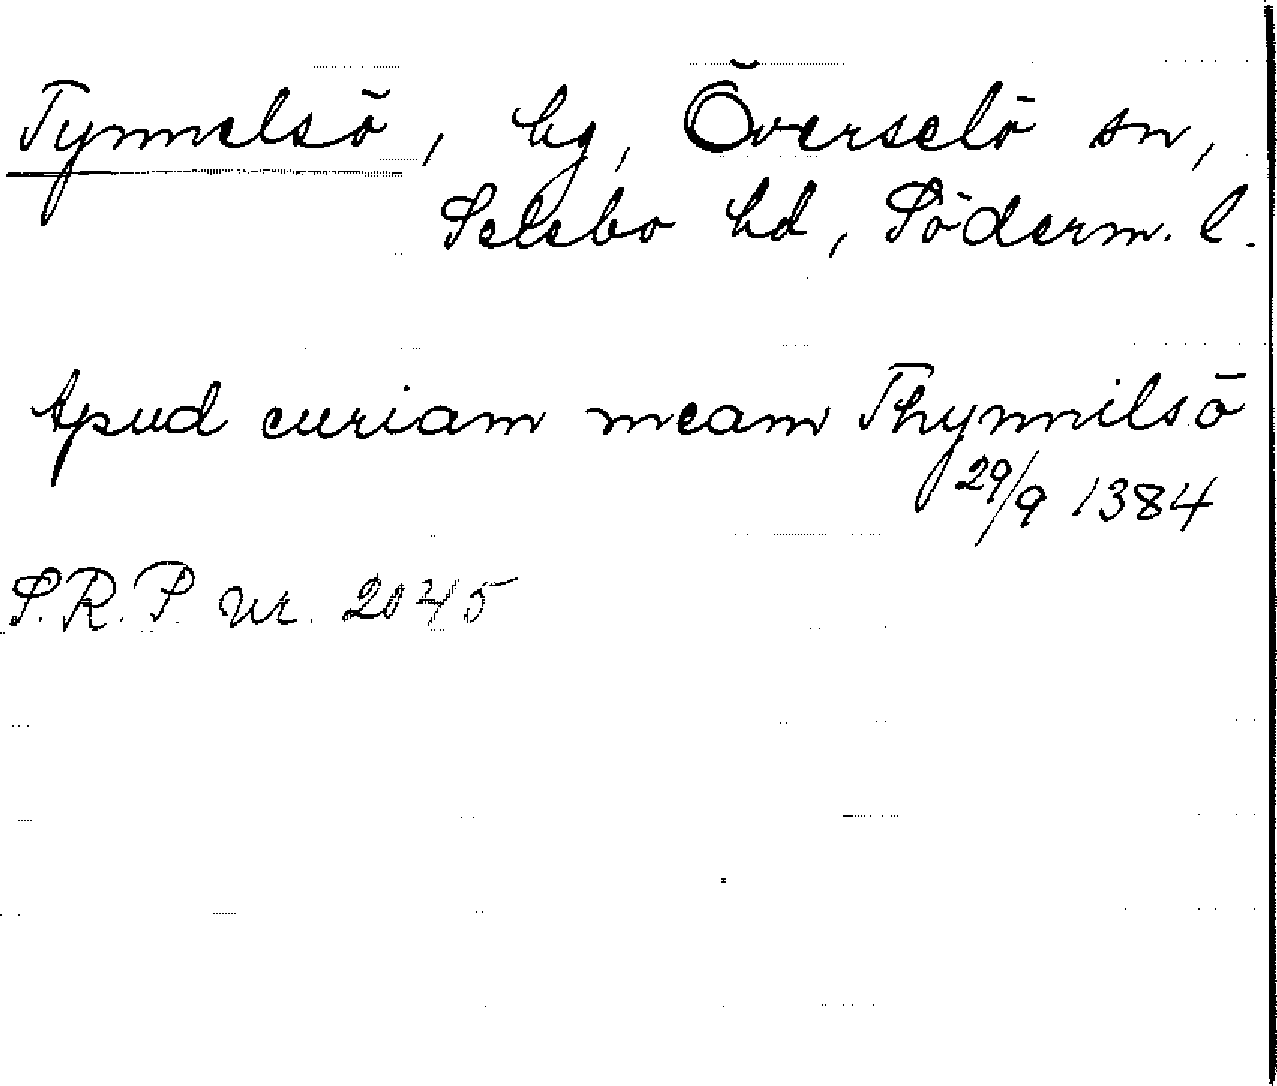 Tynnelsö, hg, Överselö sn,
Selebo hd, Söderm. l.
Apud curiam meam Thynnilsö
29/9 1384
S.R.P nr. 2045